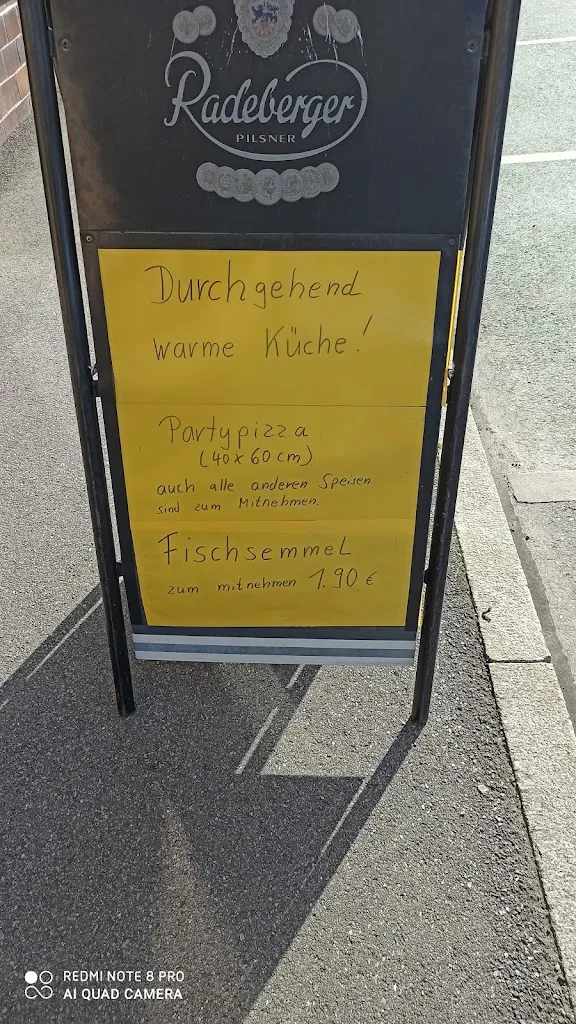 Radeberger
PILSNER
Durchgehend
warme Küche!
Partypizza
(40x60cm)
auch alle anderen Speisen
sind zum Mitnehmen.
Fischsemmel
zum mitnehmen 1.90 €
REDMI NOTE 8 PRO
AI QUAD CAMERA